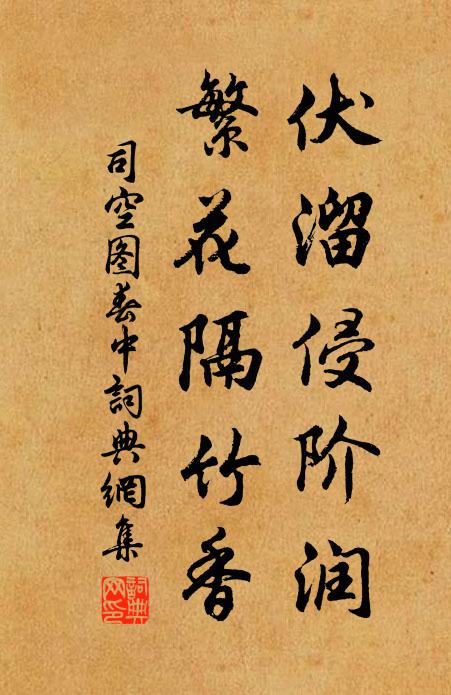 伏溜侵阶润
繁花隔竹香
司空图春中詞典網集
詞典网印